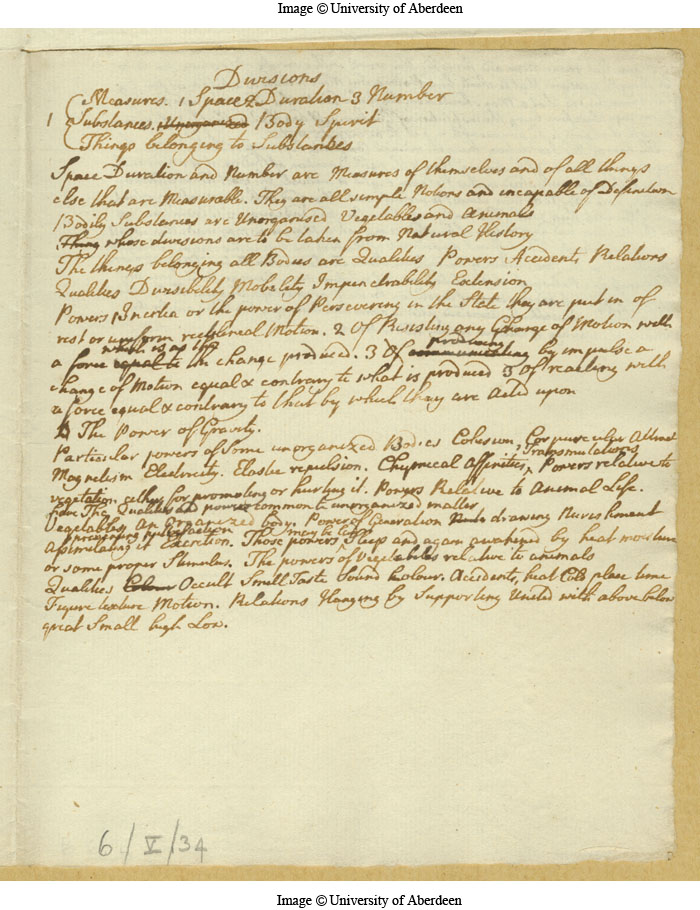 Image © University of Aberdeen
Divisions
Measures. 1 Space 2 Duration 3 Number
1 Substances. Unorganized Body Spirit
Things belonging to Substances
Space Duration and Number are Measures of themselves and of all things
else that are Measurable. They are all simple Notions and incapable of Definition
Bodily Substances are Unorganised Vegetables and Animals
Thing whose divisions are to be taken from Natural History
The things belonging all Bodies are Qualities Powers Accidents Relations
Qualities Divisibility Mobility Impenetrability Extension
Powers 1 Inertia or the power of Persevering in the State they are put in of
rest or uniform rectilineal Motion. 2 Of Resisting any Change of Motion with
a force equal to which is as the the change produced. 3 Of communicating producing by impulse a
change of Motion equal & contrary to what is produced 3 Of reacting with
a force equal & contrary to that by which they are acted upon
The Power of Gravity.
Particular powers of Some unorganized Bodies Cohesion, Corpuscular Attract
Magnetism Electricity. Elastic repulsion. Chymical Affinities, Transmutations Powers relative to
vegetation either for promoting or hurting it. Powers Relative to Animal Life.
The Qualities powers common to unorganized matter
Vegetables An Organized body. Power of Generation drawing Nourishment
Assimilating it preventing putrefaction Excretion. Those powers may be long asleep and again awakened by heat moisture
or some proper Stimulus. The powers of Vegetables relative to animals
Qualities Colour Occult Smell Taste Sound Colour. Accidents, heat Cold place time
Figure texture Motion. Relations Hanging by Supporting United with above below
great Small high Low.
6/V/34
Image © University of Aberdeen